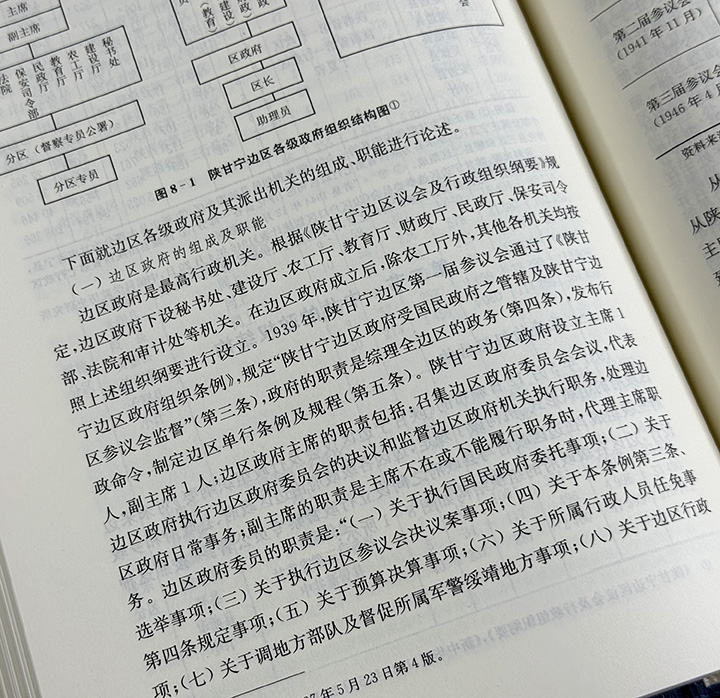 主席
副主席
法院
保安司令部
民政厅
教育厅
农工厅
建设厅
秘书处
分区（督察专员公署）
分区专员
（教育）
（建设）
（政）
区政府
区长
助理员
会
图8-1 陕甘宁边区各级政府组织结构图①
下面就边区各级政府及其派出机关的组成、职能进行论述。
（一）边区政府的组成及职能
边区政府是最高行政机关。根据《陕甘宁边区议会及行政组织纲要》规
定，边区政府下设秘书处、建设厅、农工厅、教育厅、财政厅、民政厅、保安司令
部、法院和审计处等机关。在边区政府成立后，除农工厅外，其他各机关均按
照上述组织纲要进行设立。1939年，陕甘宁边区第一届参议会通过了《陕甘
宁边区政府组织条例》，规定“陕甘宁边区政府受国民政府之管辖及陕甘宁边
区参议会监督”（第三条），政府的职责是综理全边区的政务（第四条），发布行
政命令，制定边区单行条例及规程（第五条）。陕甘宁边区政府设立主席1
人，副主席1人；边区政府主席的职责包括：召集边区政府委员会会议，代表
边区政府执行边区政府委员会的决议和监督边区政府机关执行职务，处理边
区政府日常事务；副主席的职责是主席不在或不能履行职务时，代理主席职
务。边区政府委员的职责是：“（一）关于执行国民政府委托事项；（二）关于
选举事项；（三）关于执行边区参议会决议案事项；（四）关于本条例第三条、
第四条规定事项；（五）关于预算决算事项；（六）关于所属行政人员任免事
项；（七）关于调地方部队及督促所属军警绥靖地方事项；（八）关于边区行政
年5月23日第4版。
第二届参议会
（1941年11月）
第三届参议会
（1946年4月
资料来
从
从陕
主